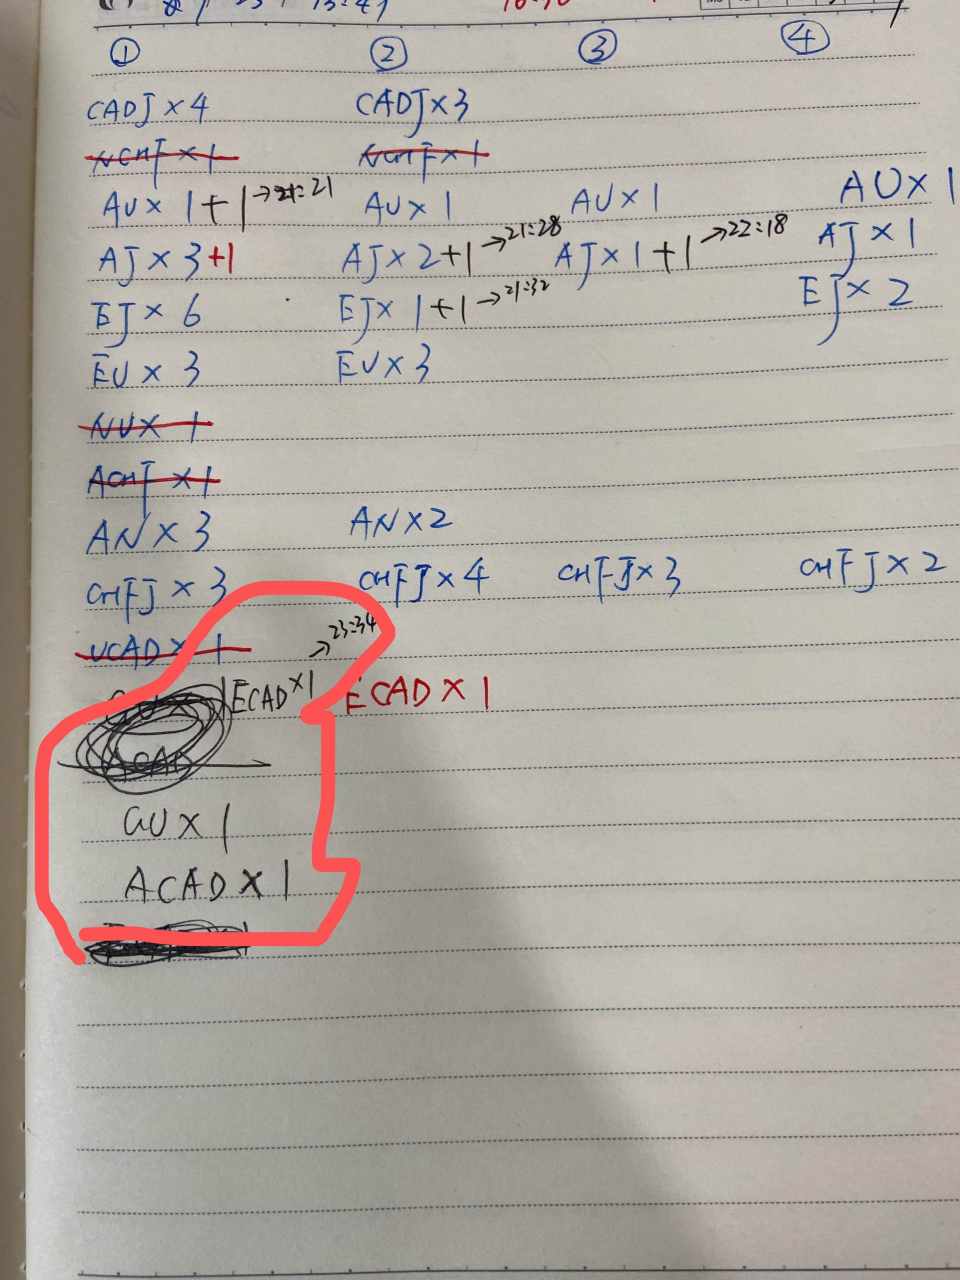 ① ② ③ ④
CADJ×4 CADJ×3
NCHF×1 NCHF×1
AU×1+1→21:21 AU×1 AU×1 AU×1
AJ×3+1 AJ×2+1→21:28 AJ×1+1→22:18 AJ×1
EJ×6 EJ×1+1→21:32 EJ×2
EU×3 EU×3
NU×1
ACHF×1
AN×3 AN×2
CHFJ×3 CHFJ×4 CHFJ×3 CHFJ×2
UCAD×1 →23:34
ECAD×1 ECAD×1
ACAD
GU×1
ACAD×1